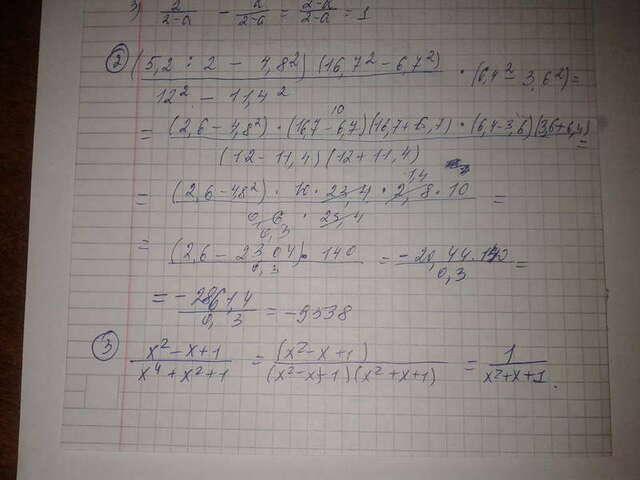 3) 2/(2-a) - a/(2-a) = (2-a)/(2-a) = 1
② (5,2 : 2 - 4,8²)(16,7² - 6,7²)/(12² - 11,4²) · (6,4² - 3,6²) =
= (2,6 - 4,8²) · (16,7 - 6,7)(16,7 + 6,7) · (6,4 - 3,6)(3,6 + 6,4)/((12 - 11,4)(12 + 11,4)) =
= (2,6 - 4,8²) · 10 · 23,4 · 2,8 · 10/(0,6 · 23,4) =
= (2,6 - 23,04) · 140/0,3 = -20,44 · 140/0,3 =
= -2861,4/0,3 = -9538
③ (x² - x + 1)/(x⁴ + x² + 1) = (x² - x + 1)/((x² - x + 1)(x² + x + 1)) = 1/(x² + x + 1).